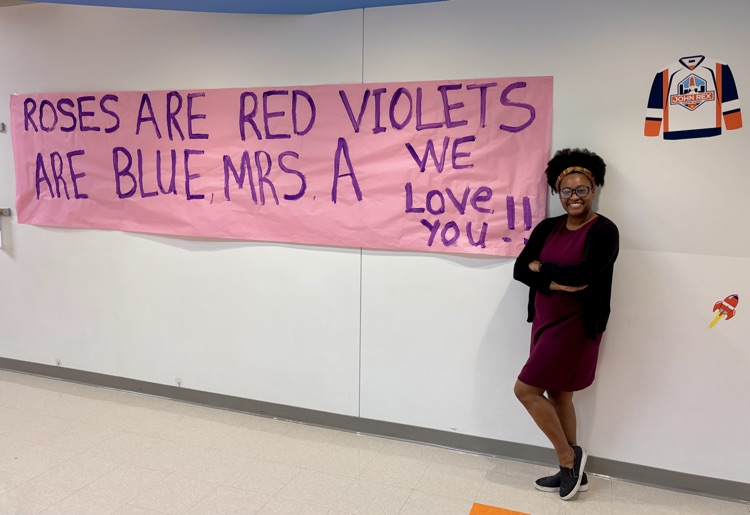 ROSES ARE RED VIOLETS
ARE BLUE, MRS. A WE
LOVE
YOU!!
JOHN REX